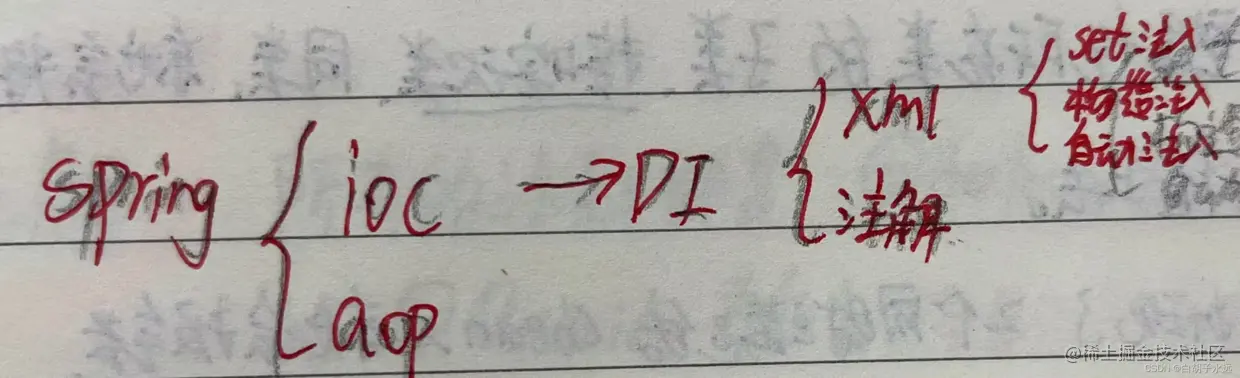 spring
ioc
→DI
xml
set注入
构造注入
自动注入
注解
aop
@稀土掘金技术社区
CSDN @白胡子永远